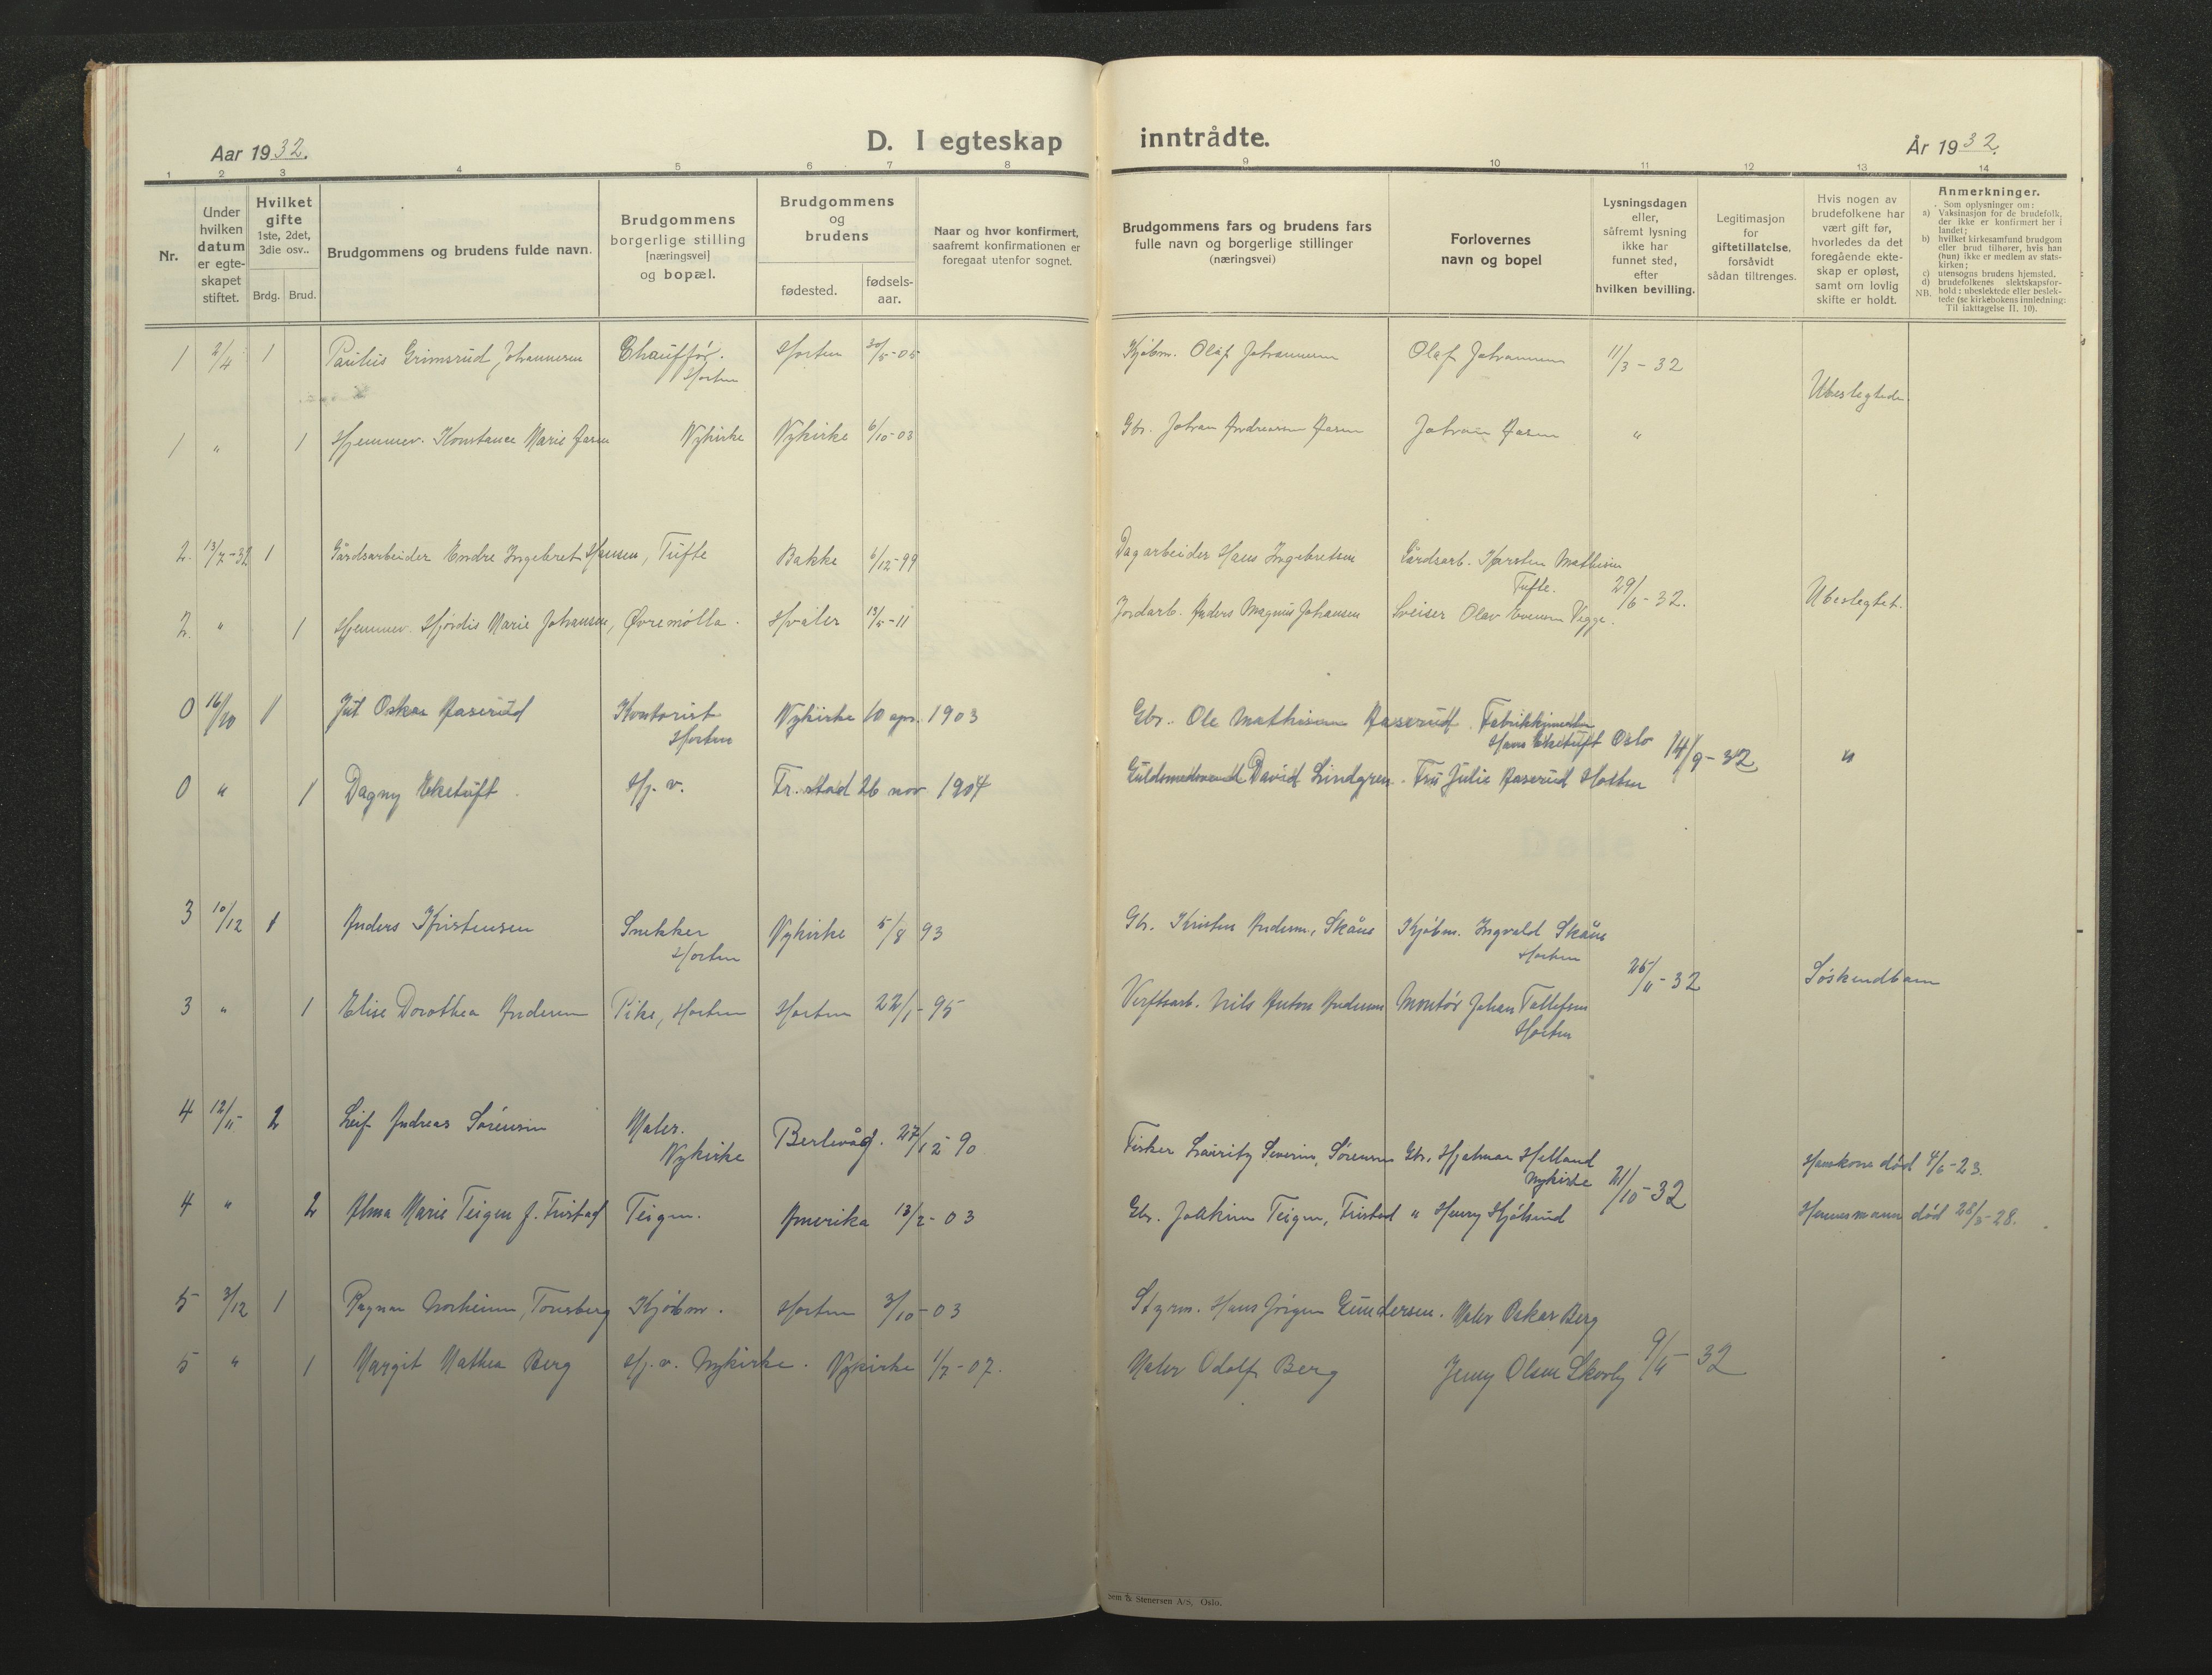 Aar 1932.
D. I egteskap
inntrådte.
År 1932.
1 2 3 4 5 6 7 8 9 10 11 12 13 14
Nr.
Under
hvilken
datum
er egte-
skapet
stiftet.
Hvilket
gifte
1ste, 2det,
3die osv..
Brdg. Brud.
Brudgommens og brudens fulde navn.
Brudgommens
borgerlige stilling
[næringsvei]
og bopæl.
Brudgommens
og
brudens
fødested.
fødsels-
aar.
Naar og hvor konfirmert,
saafremt konfirmationen er
foregaat utenfor sognet.
Brudgommens fars og brudens fars
fulle navn og borgerlige stillinger
(næringsvei)
Forlovernes
navn og bopel
Lysningsdagen
eller,
såfremt lysning
ikke har
funnet sted,
efter
hvilken bevilling.
Legitimasjon
for
giftetillatelse,
forsåvidt
sådan tiltrenges.
Hvis nogen av
brudefolkene har
vært gift før,
hvorledes da det
foregående ekte-
skap er opløst,
samt om lovlig
skifte er holdt.
Anmerkninger.
Som oplysninger om:
a) Vaksinasjon for de brudefolk,
der ikke er konfirmert her i
landet;
b) hvilket kirkesamfund brudgom
eller brud tilhører, hvis han
(hun) ikke er medlem av stats-
kirken;
c) utensogns brudens hjemsted,
d) brudefolkenes slektskapsfor-
hold: ubeslektede eller beslek-
NB. tede (se kirkebokens innledning:
Til iakttagelse II. 10).
1 2/4 1 Paulus Grimsrud Johannesen Chauffør. Horten 30/5-05 Kjøbm. Olaf Johannesen Olaf Johannesen 11/3-32
Horten
Ubeslegtede.
1 " 1 Hjemmev. Konstance Marie Aasen Nykirke Nykirke 6/10-03 Gbr. Johan Andreasen Aasen Johan Aasen "
2. 13/7-32 1 Gårdsarbeider Endre Ingebret Hansen, Tufte Bakke 6/12-99 Dagarbeider Hans Ingebretsen Gårdsarb. Karsten Mathisen
Tufte. 29/6-32. Ubeslegtet.
2. " 1 Hjemmev. Hjørdis Marie Johansen, Øvremølla. Hvaler 13/5-11 Jordarb. Anders Magnus Johansen Sveiser Olav Evensen Vegge.
0 16/10 1 Oskar Aaserud Kontorist Nykirke 10 apr. 1903 Gbr. Ole Mathisen Aaserud
Horten Hans Eketuft Oslo 14/9-32 "
0 " 1 Dagny Eketuft Hj. v. Fr.stad 26 nov 1904 David Lindgren. Fru Julie Aaserud Horten
3 10/12 1 Anders Kristensen Snekker Nykirke 5/8 93 Gbr. Kristen Andersen, Skåne Kjøbm. Ingvald Skåne
Horten Horten
Søskendbarn
3 " 1 Elise Dorothea Andersen Pike, Horten Horten 22/1-95 Verftsarb. Nils Anton Andersen Montør Johan Tollefsen
Horten
4 12/11 2 Leif Andreas Sørensen Maler. Berlevåg. 27/12-90 Fisker Lauritz Severin Sørensen Gbr. Hjalmar Helland
Nykirke Nykirke 21/10-32 Hans kone død 4/6-23.
4 " 2 Alma Marie Teigen f. Fristad Teigen. Amerika 13/2-03 Gbr. Joakim Teigen, Fristad " Henry Hjølsund Hennes mann død 28/3-28.
5 3/12 1 Ragnar Norheim, Tønsberg Kjøbm. Horten 3/10-03 Styrm. Hans Jørgen Gundersen. Maler Oskar Berg
5 " 1 Margit Mathea Berg Hj. v. Nykirke. Nykirke 1/7-07. Maler Odolf Berg Jenny Olsen Skovly 9/11-32
sem & Stenersen A/S, Oslo.